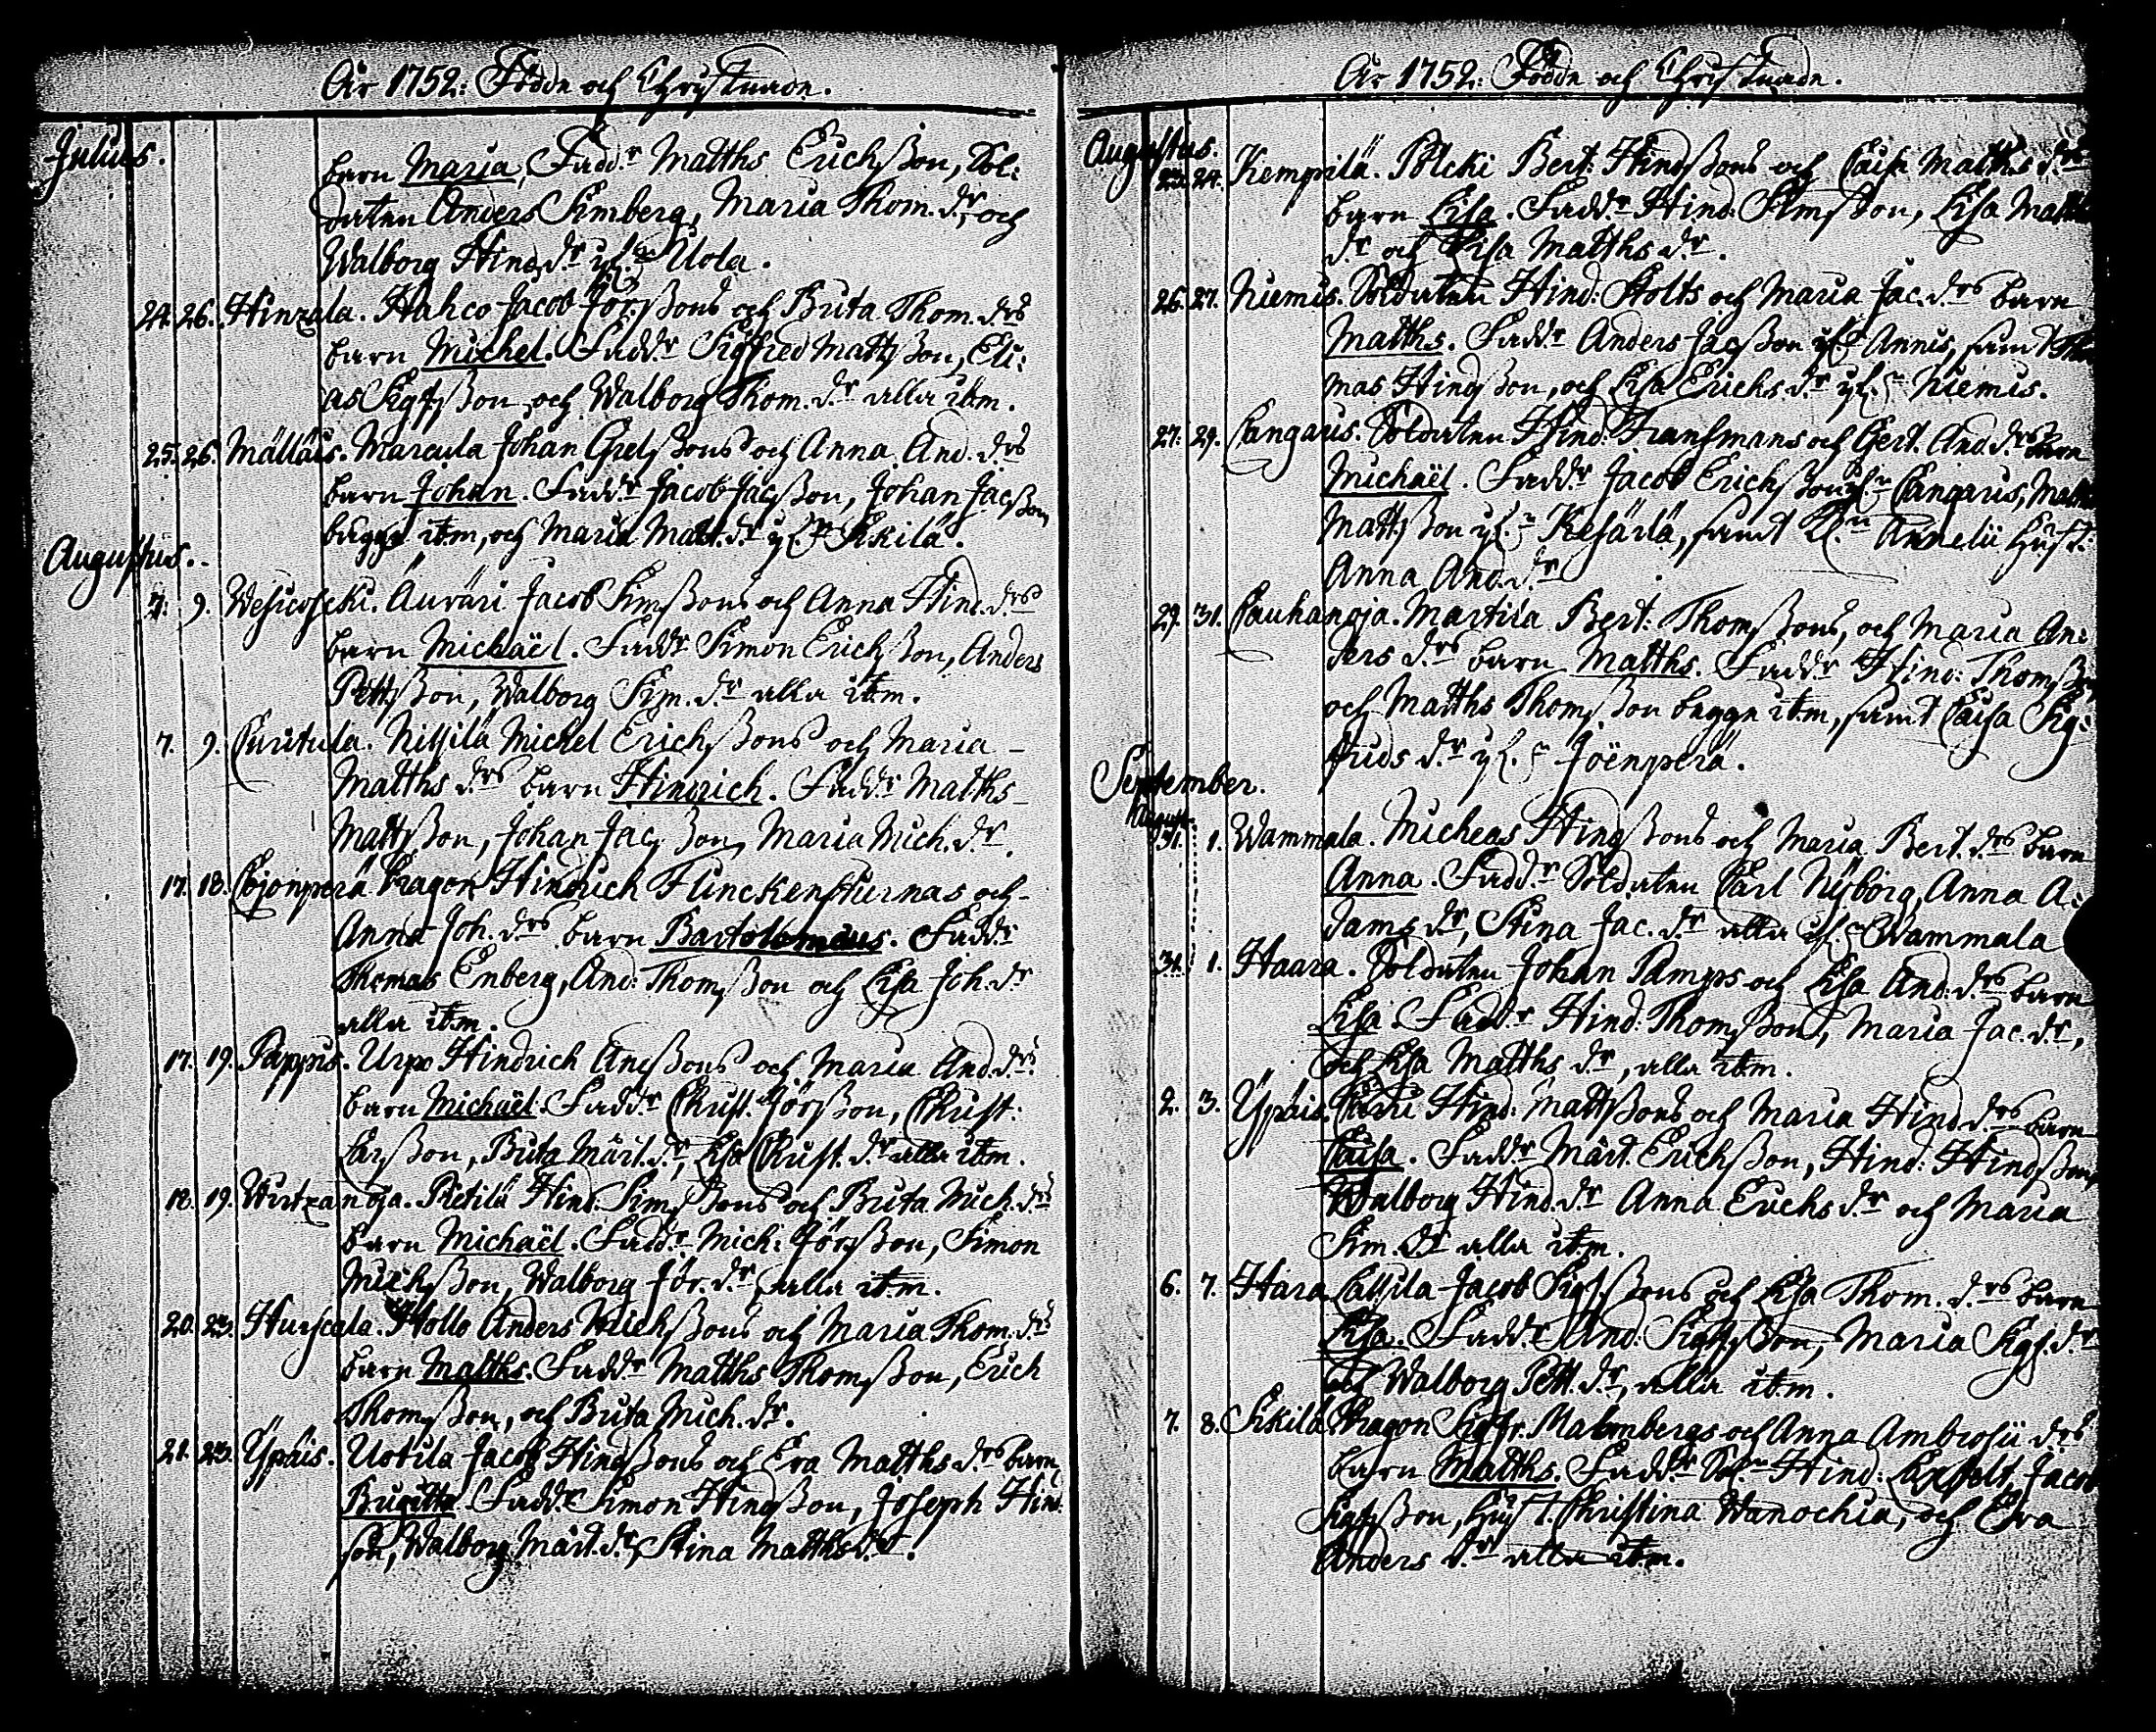 År 1752: Födde och Christnade.
Julius.
barn Maria, Fadd:r Matths Erichsson, Sol:
daten Anders Simberg, Maria Thom. d:r, och
Walborg Hind. d:r Uola.
24. 26. Hinzala. Hahco Jacob Jör:ssons och Brita Thom. d:rs
barn Michel. Fadd:r Sigfred Mattsson, Eli:
as Sigfsson och Walborg Thom. d:r alla ibm.
25. 26. Mällais. Marcula Johan Grelssons och Anna And. d:rs
barn Johan. Fadd:r Jacob Jacsson, Johan Jacsson
bägge ibm, och Maria Matt. d:r Sikilä.
Augustus.
7. 9. Wesicoscki. Äuräri Jacob Simssons och Anna Hind. d:rs
barn Michaël. Fadd:r Simon Erichsson, Anders
Pettsson, Walborg Sim. d:r alla ibm.
7. 9. Curitula. Nihilä Michel Erichssons och Maria
Matths d:rs barn Hindrich. Fadd:r Matths
Mattsson, Johan Jacsson, Maria Mich. d:r.
17. 18. Cojonperä Dragon Hindrich Flinckenhurnas och
Anna Joh. d:rs barn Bartolomæus. Fadd:r
Thomas Enberg, And: Thomsson och Lisa Joh. d:r
alla ibm.
17. 19. Pappis. Urpo Hindrich Andssons och Maria And. d:rs
barn Michaël. Fadd:r Christ. Jörsson, Christ:
Larsson, Brita Märt. d:r, Lisa Christ. d:r alla ibm.
18. 19. Wirtzanoja. Pietilä Hind. Simssons och Brita Mich. d:rs
barn Michaël. Fadd:r Mich: Jörsson, Simon
Michsson, Walborg Jör. d:r, alla ibm.
20. 23. Hurscala. Hollo Anders Michssons och Maria Thom. d:rs
barn Matths. Fadd:r Matths Thomsson, Erich
Thomsson, och Brita Mich. d:r.
21. 23. Ypäis. Uotila Jacob Hindssons och Eva Matths d:rs barn
Brigitta. Fadd:r Simon Hindsson, Joseph Hind.
son, Walborg Märt. d:r, Stina Matths d:r.
År 1752: Födde och Christnade.
Augustus.
23. 24. Kempilä. Pölcki Bert: Hindssons och Caisa Matths d:rs
barn Lisa. Fadd:r Hind: Simsson, Lisa Matths
d:r och Lisa Matths d:r.
26. 27. Niemis. Soldaten Hind: Stolts och Maria Jac. d:rs barn
Matths. Fadd:r Anders Jacsson Annis, samt Tho
mas Hindsson, och Lisa Erichs d:r Niemis.
27. 29. Cangais. Soldaten Hind: Fransmans och Gert. And. d:rs barn
Michaël. Fadd:r Jacob Erichsson Cangais, Matths
Mattsson Kesärlä, samt Annelii Hust:
Anna And. d:r
29. 31. Cauhanoja. Martila Bert: Thomssons, och Maria An:
ders d:rs barn Matths. Fadd:r Hind: Thomsson
och Matths Thomsson begge ibm, samt Caisa Sig:
frids d:r Joënperä.
September.
August.
31. 1. Wammala. Micheas Hindssons och Maria Bert. d:rs barn
Anna. Fadd:r Soldaten Carl Nyborg, Anna A:
dams d:r, Stina Jac. d:r alla Wammala
31. 1. Haara. Soldaten Johan Pamps och Lisa And. d:rs barn
Lisa. Fadd:r Hind: Thomsson, Maria Jac. d:r,
och Lisa Matths d:r, alla ibm.
2. 3. Ypäis. Hind: Mattssons och Maria Hind. d:rs barn
Caisa. Fadd:r Märt. Erichsson, Hind: Hindsson,
Walborg Hind. d:r Anna Erichs d:r och Maria
Sim. d:r alla ibm.
6. 7. Hara Jacob Sigf:ssons och Lisa Thom. d:rs barn
Lisa. Fadd:r And: Sigfsson, Maria Sigf. d:r
och Walborg Pett. d:r, alla ibm.
7. 8. Sikilä Dragon Sigfr. Malmbergs och Anna Ambrosii d:rs
barn Matths. Fadd:r Sol:n Hind: Jacob
Sigfsson, Hust. Christina Wanochia, och Eva
Anders d:r alla ibm.